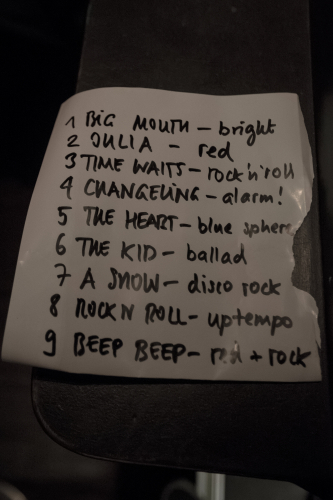 1 BIG MOUTH – bright
2 JULIA – red
3 TIME WAITS – rock'n'roll
4 CHANGELING – alarm!
5 THE HEART – blue sphere
6 THE KID – ballad
7 A SNOW – disco rock
8 ROCK N ROLL – uptempo
9 BEEP BEEP – red + rock